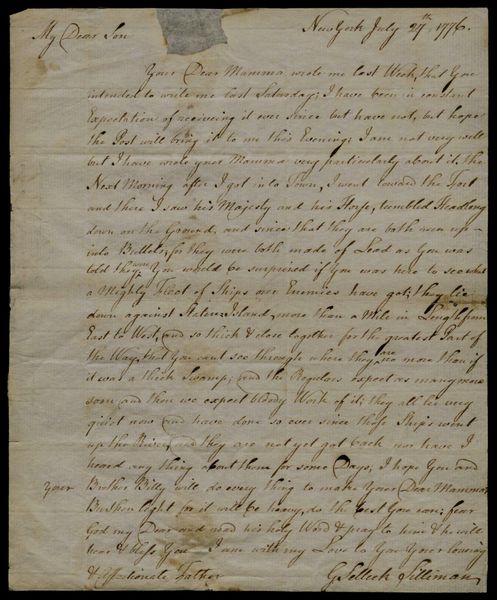 My Dear Son
New York July 27th 1776.
Your Dear Mamma wrote me last Week, that You
intended to write me last Saturday; I have been in constant
Expectation of receiving it ever since but have not, but hope
the Post will bring it to me this Evening; I am not very well
but I have wrote your Mamma very particularly about it. the
Next Morning after I got into Town, I went toward the Fort
and there I saw his Majesty and his Horse, tumbled Headlong
down on the Ground, and since that they are both run up
into Bullets, for they were both made of Lead as You was
told they were. You would be surprised if You was here to see what
a Mighty Fleet of Ships our Enemies have got; they lie
down against Staten Island, more than a Mile in Length from
East to West, and so thick & close together for the greatest Part of
the Way, that You cant see through where they are no more than if
it was a thick Swamp; and the Regulars expect as many more
soon and then we expect bloody Work of it; they all lie very
quiet now and have done so ever since those Ships went
up the River, and they are not yet got back nor have I
heard any thing about them for some Days, I hope You and
Your Brother Billy will do every thing to make Your Dear Mamma's
Burthen light for it will be heavy, do the best You can; fear
God my Dear and read his holy Word & pray to him & he will
hear & bless You I am with my Love to You Your loving
& Affectionate Father
G Selleck Silliman